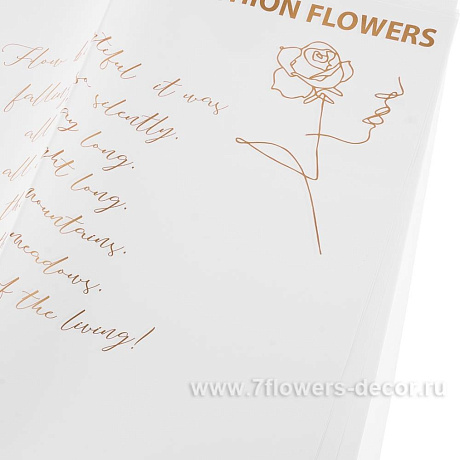 HION FLOWERS
Flow tiful it was
fallin so silently.
all ay long.
all ght long.
mountains.
meadows.
of the living!
www.7flowers-decor.ru